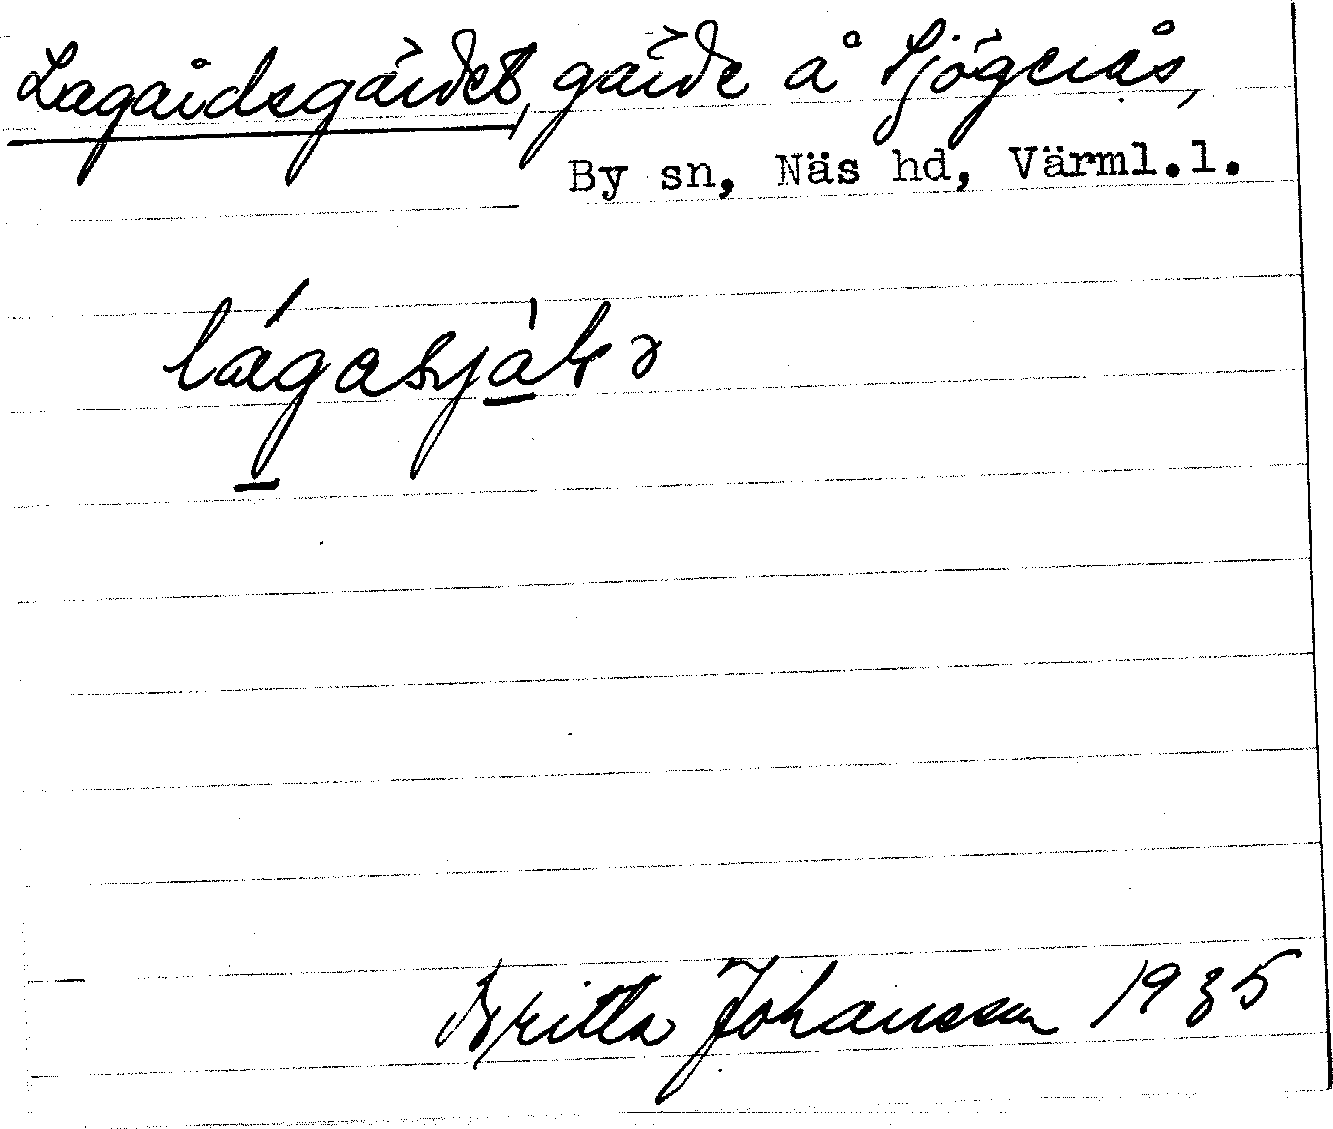 Lagårdsgärdet, gärde å Sjögerås,
By sn, Näs hd, Värml.l.
Britta Johansson 1935